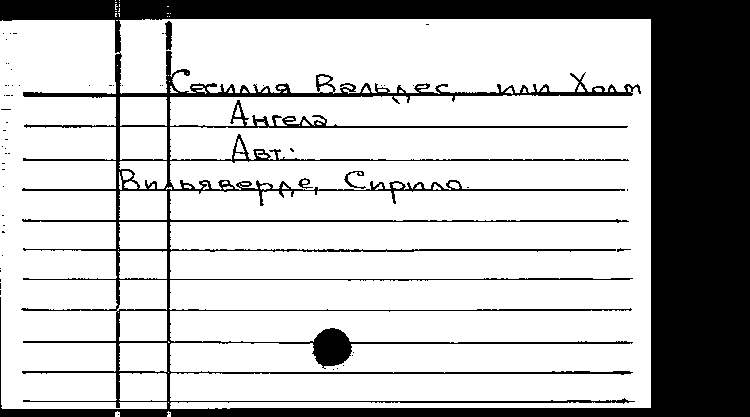 Сесилия Вальдес, или Холм
Ангела.
Авт.:
Вильяверде, Сирило.